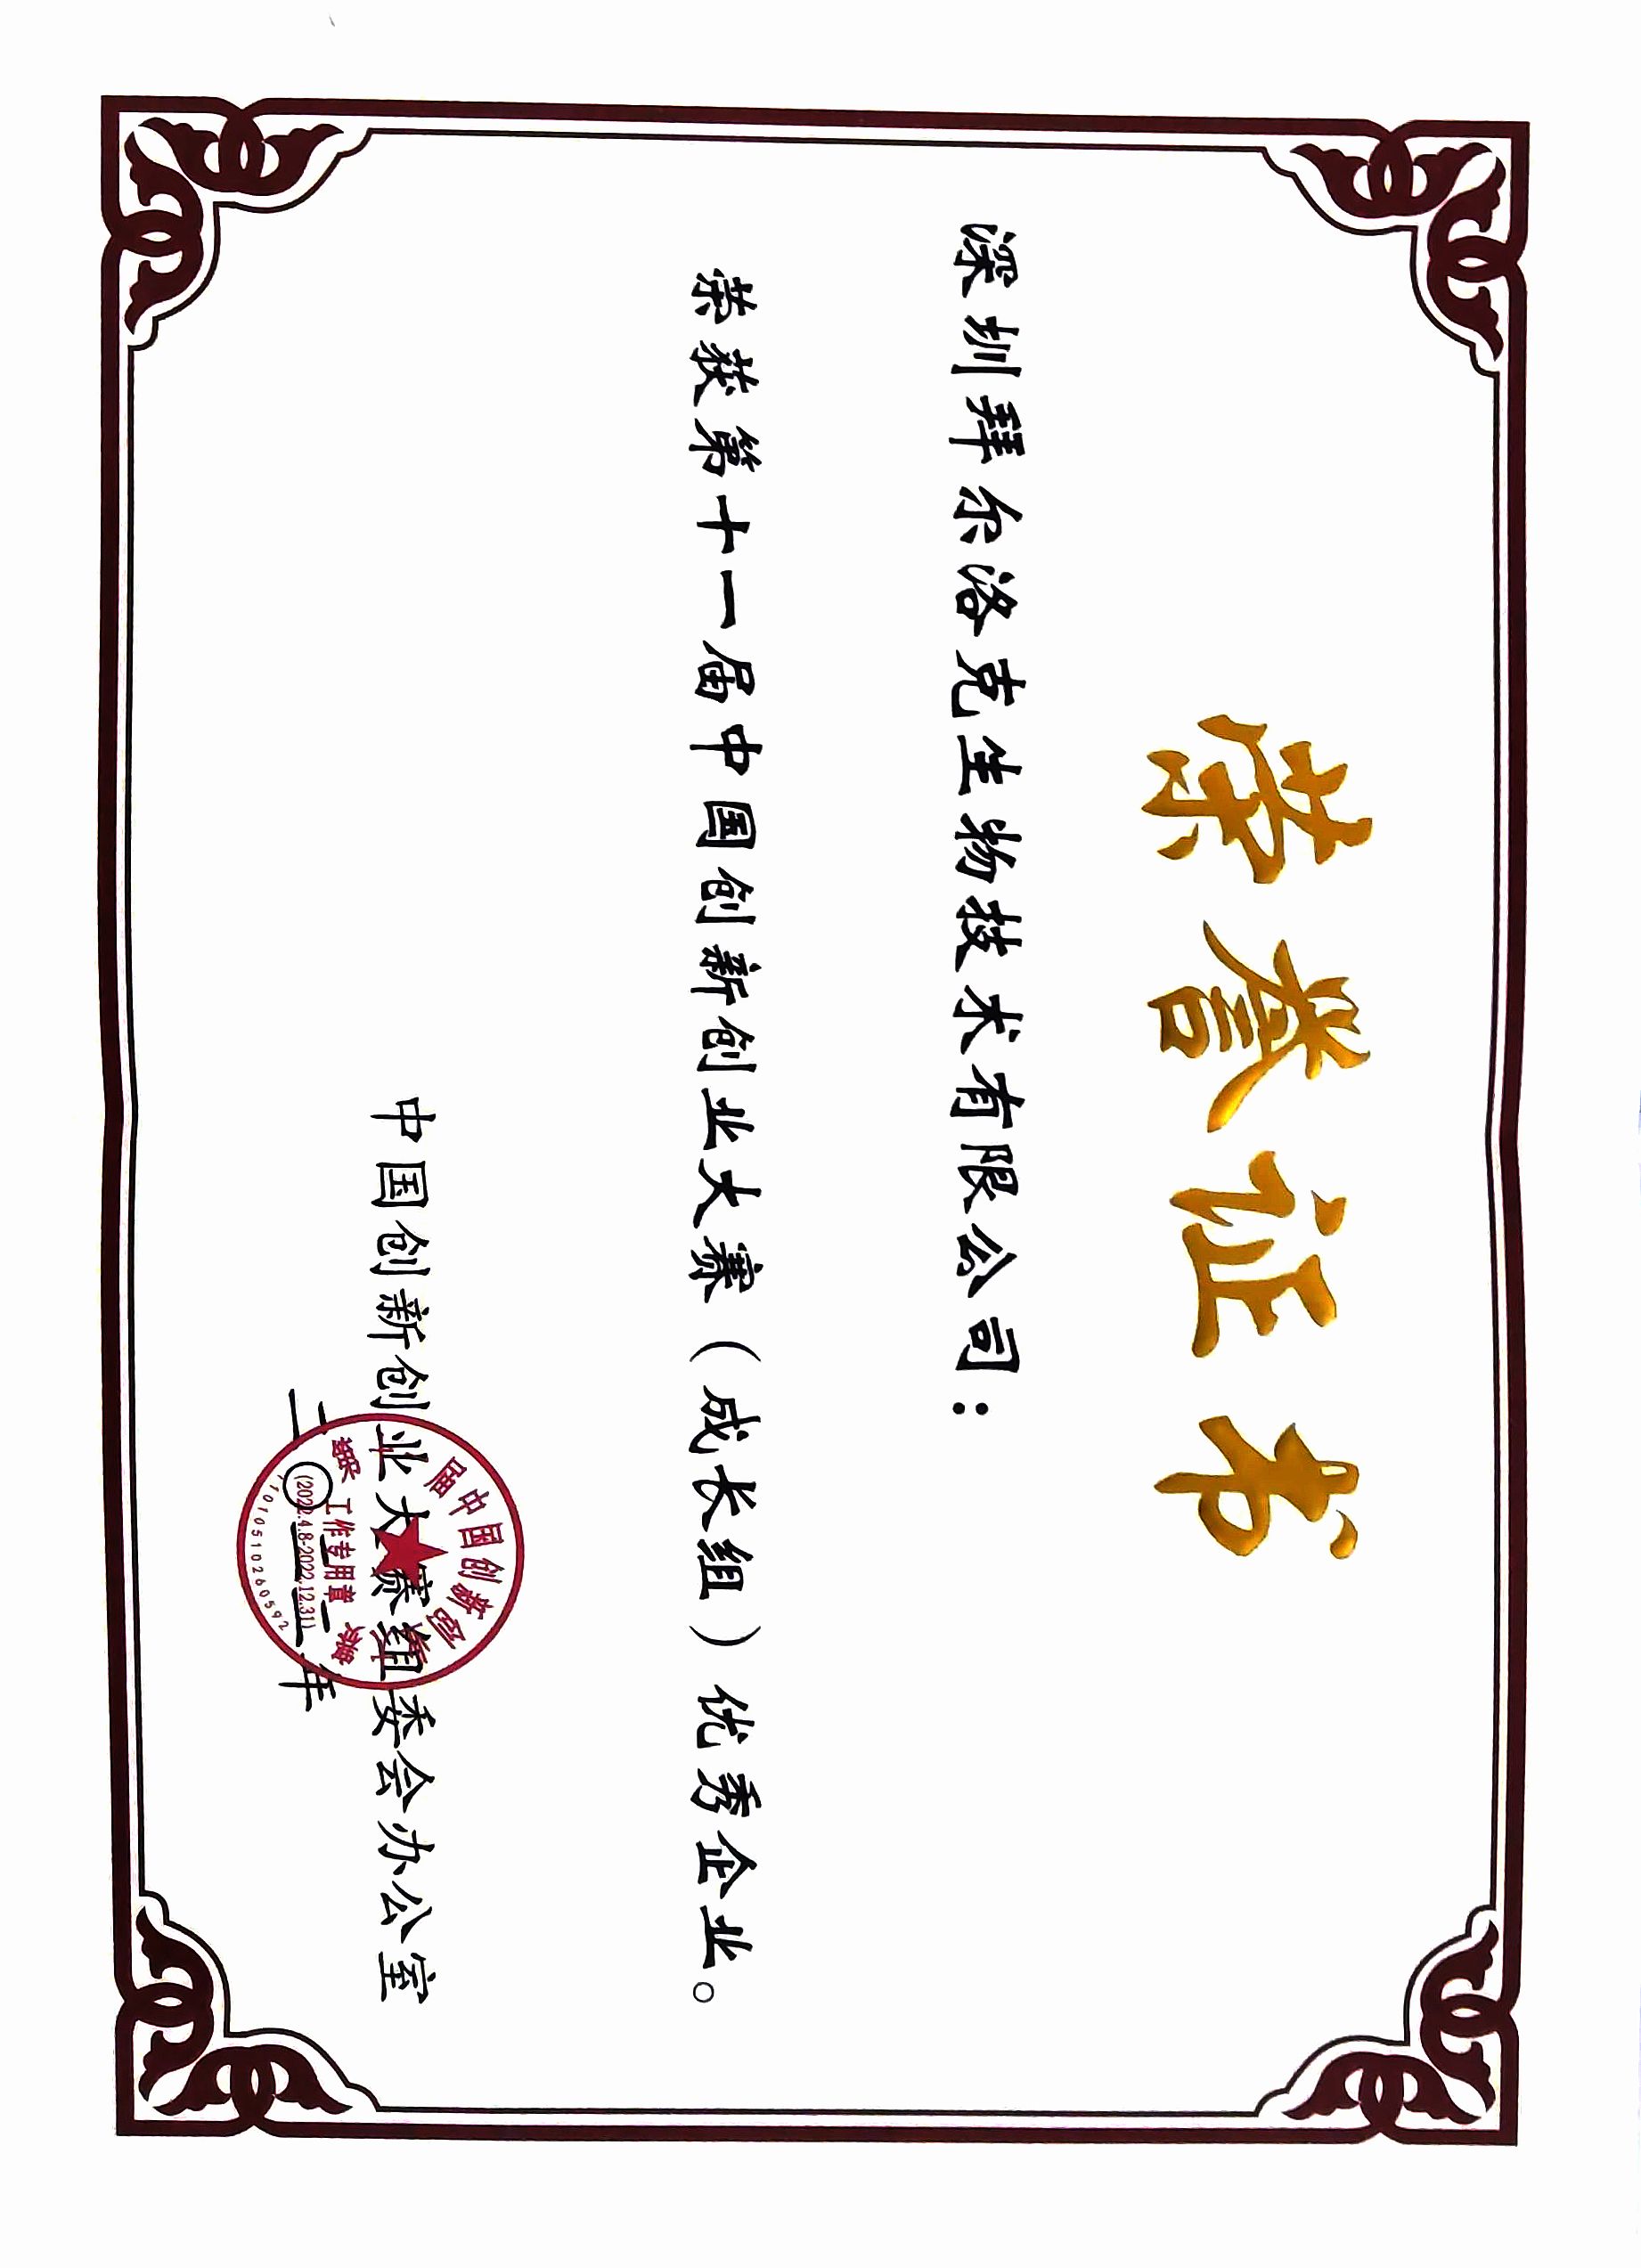 荣誉证书
深圳拜尔洛克生物技术有限公司：
荣获第十一届中国创新创业大赛（成长组）优秀企业。
中国创新创业大赛组委会办公室
二〇二二年
届中国创新创
工作专用章
(2022.4.8-2022.12.31)
1101051026059２